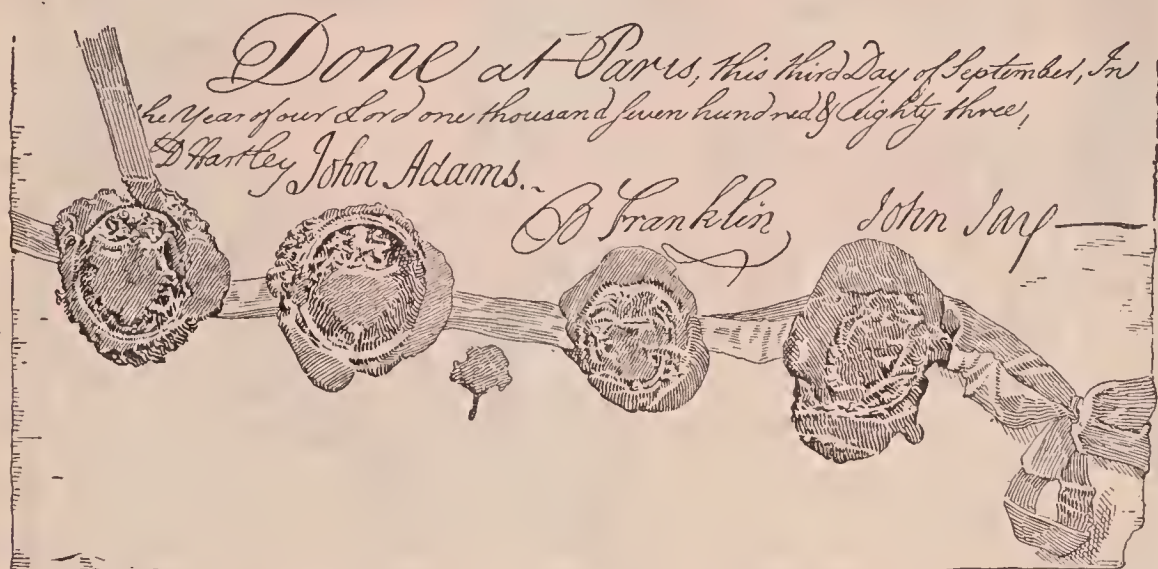 Done at Paris, this third Day of September, In
he Year of our Lord one thousand seven hundred & eighty three,
D Hartley John Adams.
B Franklin John Jay